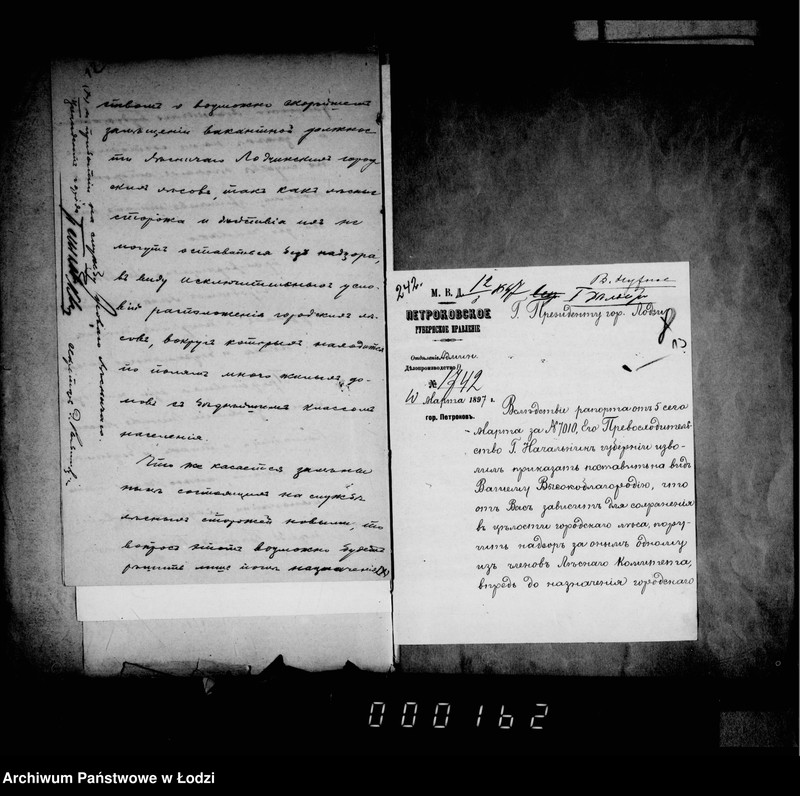 тваютъ о возможно скорѣйшемъ
замѣщеніи вакантной должнос
ти Лѣсничаго Лодзинскихъ город
скихъ лѣсовъ, такъ какъ лѣсные
сторожа и дѣйствія ихъ не
могутъ оставаться безъ надзора,
въ виду исключительныхъ усло
вій расположенія городскихъ лѣ
совъ, вокругъ которыхъ находится
по полямъ много жилыхъ до-
мовъ съ бѣднѣйшимъ классомъ
населенія.
Что же касается замѣны
нынѣ состоящихъ на службѣ
лѣсныхъ сторожей новыми, то
вопросъ этотъ возможно будетъ
рѣшить лишь послѣ назначенія
242.
М. В. Д.
ПЕТРОКОВСКОЕ
ГУБЕРНСКОЕ ПРАВЛЕНІЕ
Г. Президенту гор. Лодзи
Отдѣленіе Админ.
Дѣлопроизводство
№ 1742
Марта 1897 г.
гор. Петроковъ.
8
Вслѣдствіе рапорта отъ 5 сего
Марта за № 7010, Его Превосходитель
ство Г. Начальникъ губерніи изво-
лилъ приказать поставить на видъ
Вашему Высокоблагородію, что
отъ Васъ зависитъ для сохраненія
въ цѣлости городскаго лѣса, пору-
чить надзоръ за онымъ одному
изъ членовъ Лѣснаго Комитета,
впредь до назначенія городскаго
000162
Archiwum Państwowe w Łodzi